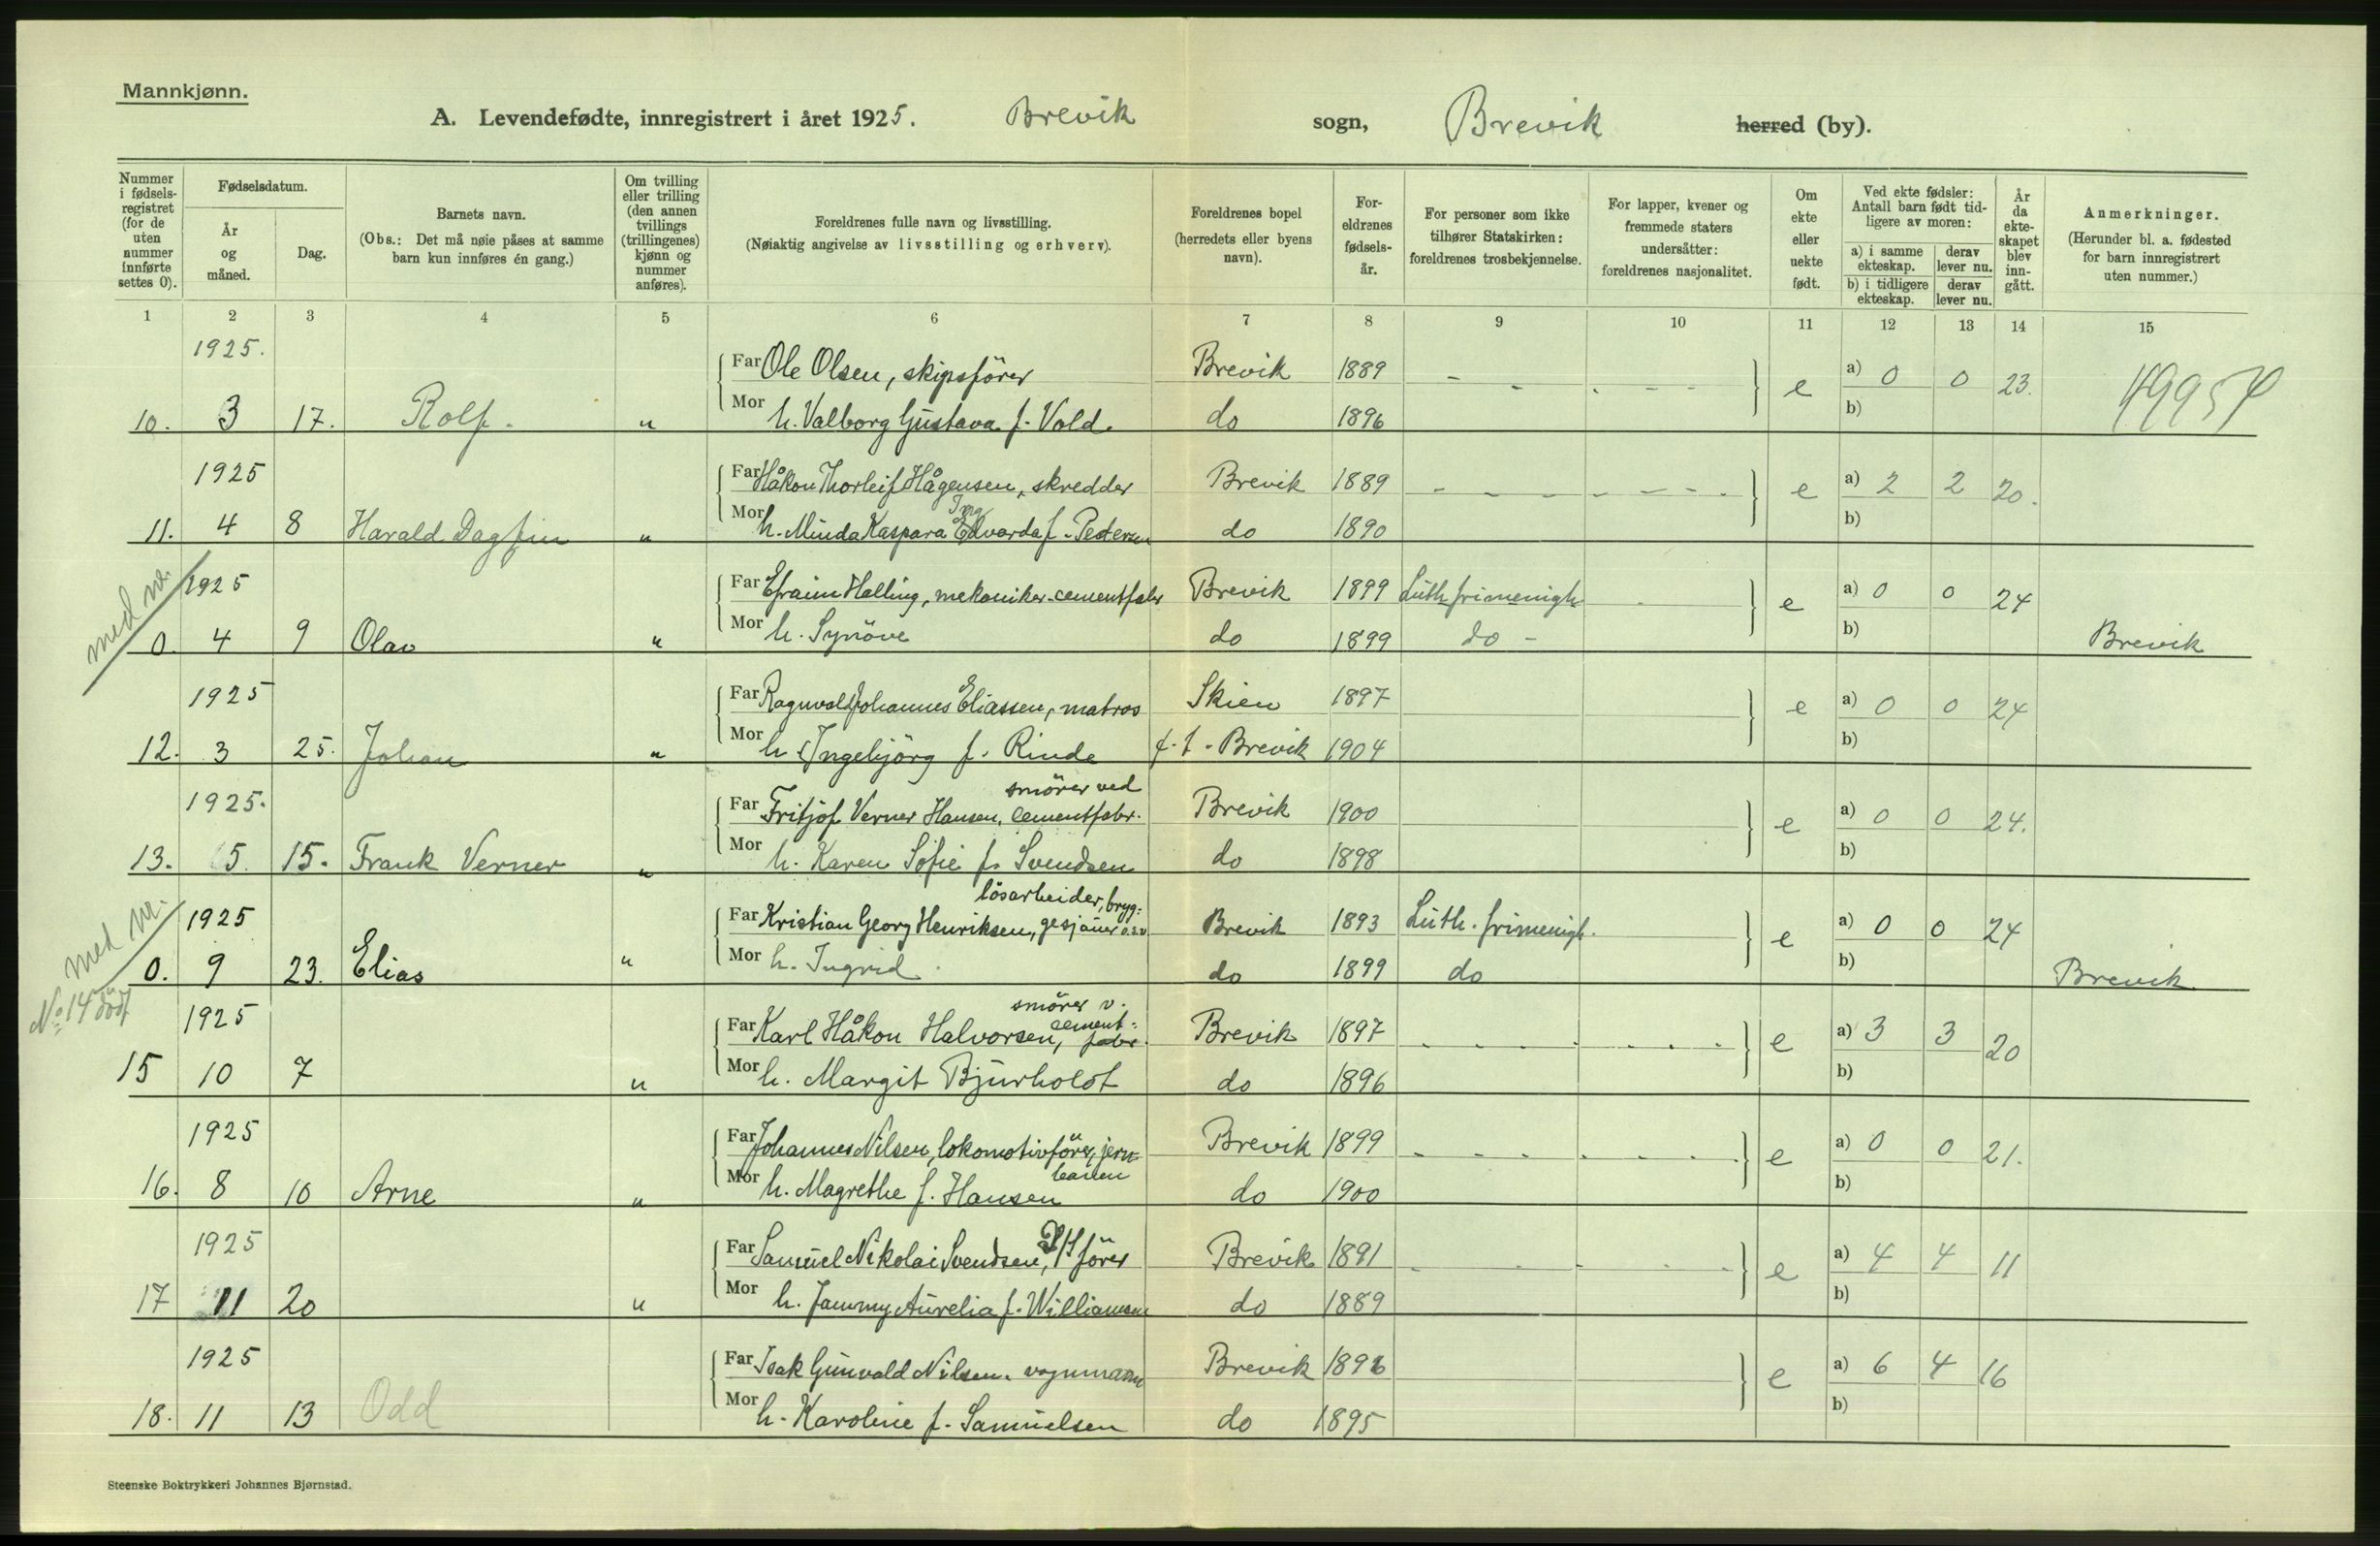 Mannkjønn.
A. Levendefødte, innregistrert i året 1925. Brevik sogn, Brevik herred (by).
Nummer i fødsels-registret (for de uten nummer innførte settes 0).
Fødselsdatum.
År og måned.
Dag.
Barnets navn.
(Obs.: Det må nøie påses at samme barn kun innføres én gang.)
Om tvilling eller trilling (den annen tvillings (trillingenes) kjønn og nummer anføres).
Foreldrenes fulle navn og livsstilling.
(Nøiaktig angivelse av livsstilling og erhverv).
Foreldrenes bopel (herredets eller byens navn).
For-eldrenes fødsels-år.
For personer som ikke tilhører Statskirken: foreldrenes trosbekjennelse.
For lapper, kvener og fremmede staters undersåtter: foreldrenes nasjonalitet.
Om ekte eller uekte født.
Ved ekte fødsler: Antall barn født tid-ligere av moren:
a) i samme ekteskap. derav lever nu.
b) i tidligere ekteskap. derav lever nu.
År da ekte-skapet blev inn-gått.
Anmerkninger.
(Herunder bl. a. fødested for barn innregistrert uten nummer.)
1 2 3 4 5 6 7 8 9 10 11 12 13 14 15
1925. Far Ole Olsen, skipsförer Brevik 1889 - - . - - e a) 0 0 23. 49954
10. 3 17. Rolf. " Mor h. Valborg Gustava f. Vold. do 1896 b)
1925 Far Håkon Thorleif Hågensen, skredder Brevik 1889 - - - - - - - e a) 2 2 20.
Ing
11. 4 8 Harald Dagfin " Mor h. Minda Kaspara Edvarda f. Pedersen do 1890 b)
med nr.
1925 Far Efraim Halling, mekaniker cementfabr Brevik 1899 Luth frimenigh e a) 0 0 24
0. 4 9 Olav " Mor h. Synöve do 1899 do - b) Brevik
1925 Far Ragnvald Johannes Eliassen, matros Skien 1897 e a) 0 0 24
12. 3 25. Johan " Mor h. Ingebjörg f. Rinde f.t. Brevik 1904 b)
smörer ved
1925. Far Fritjof Verner Hansen, cementfabr. Brevik 1900 e a) 0 0 24.
13. 5. 15. Frank Verner " Mor h. Karen Sofie f. Svendsen do 1898 b)
lösarbeider, bryg-
med nr.
1925 Far Kristian Georg Henriksen, gesjauer o.s.v Brevik 1893 Luth. frimenigh. e a) 0 0 24
0. 9 23. Elias " Mor h. Ingrid do 1899 do b) Brevik
No 14 död
smörer v.
1925 Far Karl Håkon Halvorsen, cement-fabr. Brevik 1897 e a) 3 3 20
15 10 7 " Mor h. Margit Bjurholdt do 1896 b)
1925 Far Johannes Nilsen, lokomotivförer, jern- Brevik 1899 e a) 0 0 21.
banen
16. 8 10 Arne " Mor h. Magrethe f. Hansen do 1900 b)
1925 Far Samuel Nikolai Svendsen, förer Brevik 1891 e a) 4 4 11
17 11 20 " Mor h. Jammy Aurelia f. Williamsen do 1889 b)
1925 Far Isak Gunvald Nilsen. vognmann Brevik 1896 e a) 6 4 16
18. 11 13 Odd Mor h. Karoline f. Samuelsen do 1895 b)
Steenske Boktrykkeri Johannes Bjørnstad.